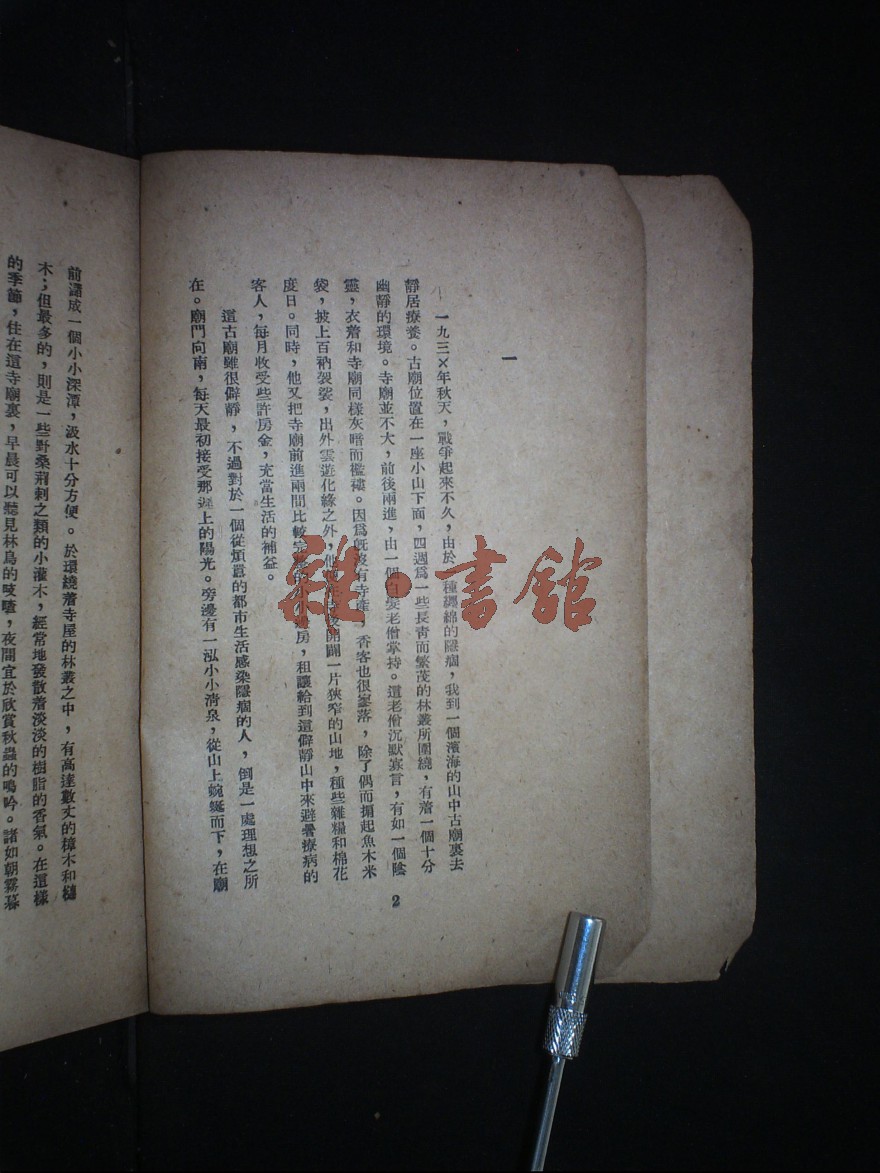 一
一九三×年秋天，戰爭起來不久，由於一種纏綿的隱痼，我到一個濱海的山中古廟裏去
靜居療養。古廟位置在一座小山下面，四週爲一些長靑而繁茂的林叢所圍繞，有着一個十分
幽靜的環境。寺廟並不大，前後兩進，由一個白髮老僧掌持。這老僧沉默寡言，有如一個陰
靈，衣着和寺廟同樣灰暗而襤褸。因爲旣沒有寺產，香客也很寥落，除了偶而掮起魚木米
袋，披上百衲袈裟，出外雲遊化緣之外，他開闢一片狹窄的山地，種些雜糧和棉花
度日。同時，他又把寺廟前進兩間比較完整的小小邊房，租讓給到這僻靜山中來避暑療病的
客人，每月收受些許房金，充當生活的補益。
這古廟雖很僻靜，不過對於一個從煩囂的都市生活感染隱痼的人，倒是一處理想之所
在。廟門向南，每天最初接受那遲上的陽光。旁邊有一泓小小淸泉，從山上蜿蜒而下，在廟
2
前瀦成一個小小深潭，汲水十分方便。於環繞着寺屋的林叢之中，有高達數丈的樟木和
木；但最多的，則是一些野桑荊刺之類的小灌木，經常地發散着淡淡的樹脂的香氣。在這樣
的季節，住在這寺廟裏，早晨可以聽見林鳥的吱喳，夜間宜於欣賞秋蟲的鳴吟。諸如朝霧暮
雜·書館